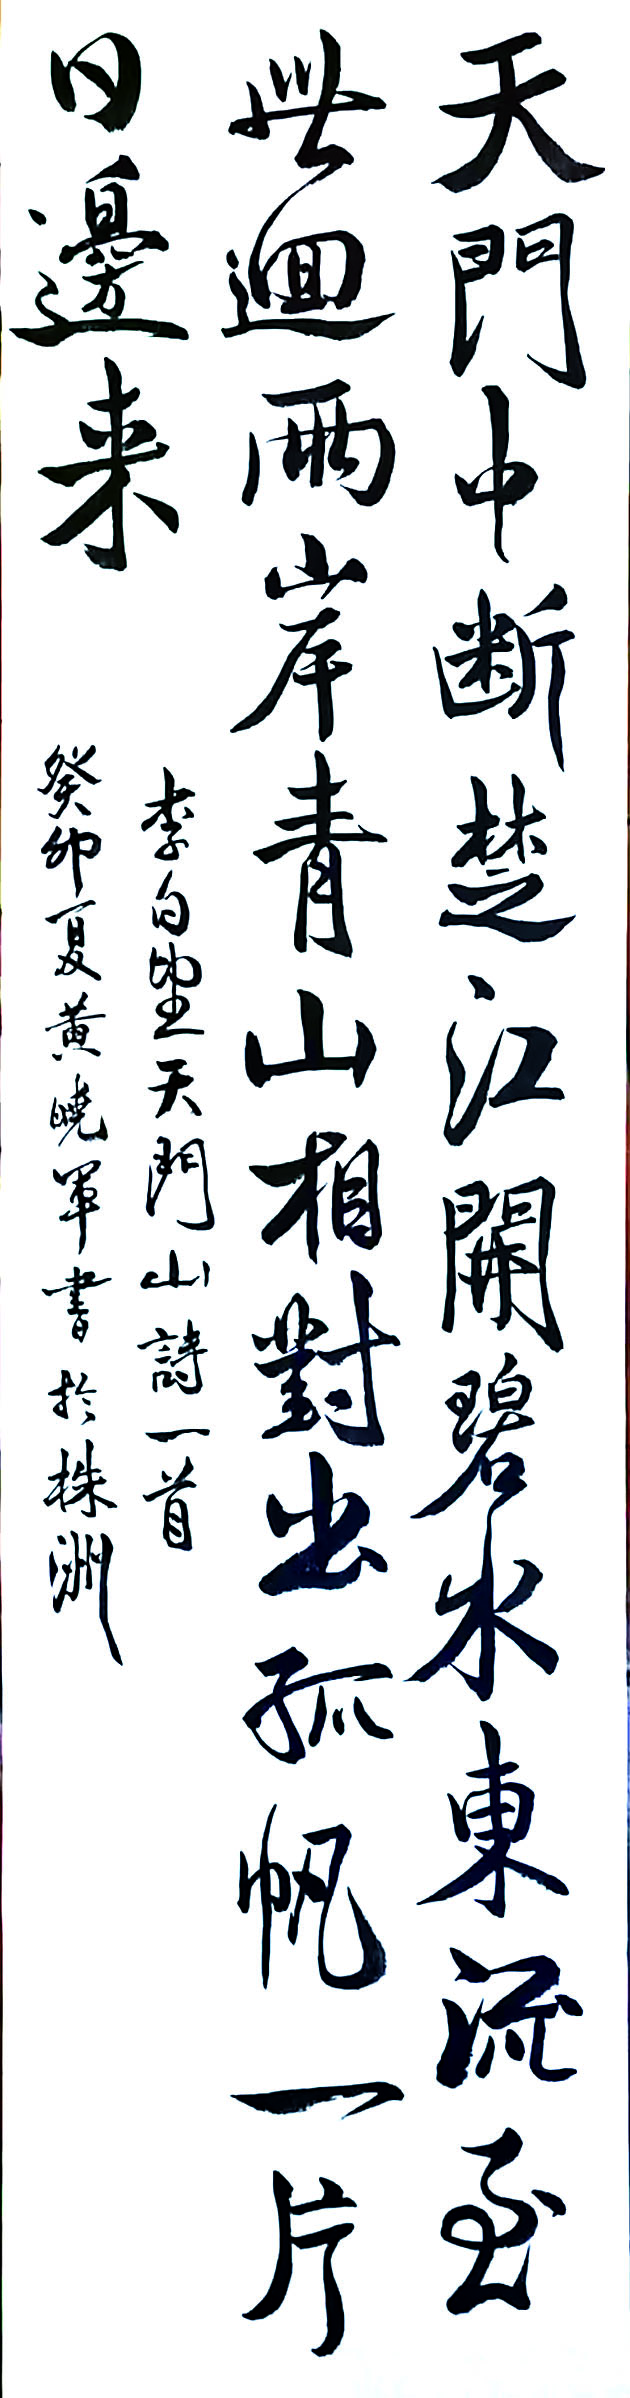 天門中断楚江開碧水東流至
此迴兩岸青山相對出孤帆一片
日邊来
李白望天門山詩一首
癸卯夏黄曉軍書於株洲